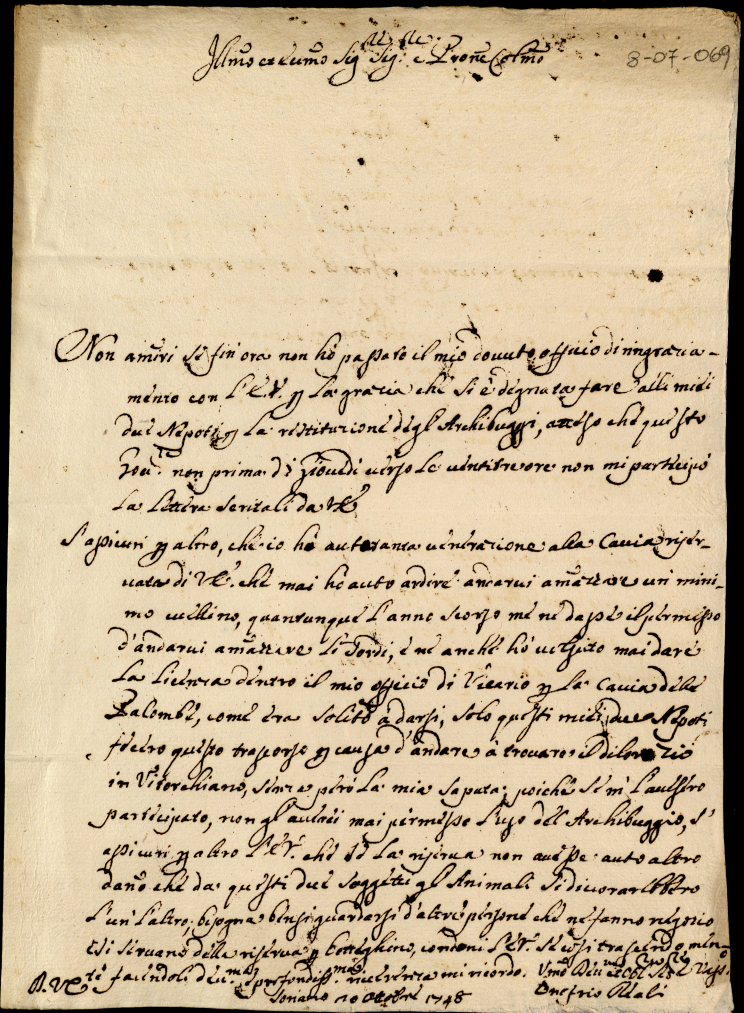 Illmo et Eccmo Sig.re Sig.re e Prone Colmo
8-07-069
Non amiri se fin'ora non hò passato il mio dovuto officio di ringrazia-
mento con l'E.V. p la grazia che si è degnata fare alli miei
due Nepoti p la restituzione degl'Archibuggi, atteso che questo
Gov.re non prima di Giovedì verso le ventitre ore non mi participò
la lettera scritali da V.E.
S'assicuri p altro, che io hò auto tanta venerazione alla Caccia riser-
vata di V.E. che mai hò auto ardire andarvi amazzare un mini-
mo ucellino, quantunque l'anno scorso me ne dasse il permesso
d'andarvi amazzare li Tordi, e ne anche hò volsuto mai dare
la licenza dentro il mio officio di Vicario p la Caccia delle
Palombe, come era solito à darsi, solo questi miei due Nepoti
fecero questo trascorso p causa d'andare à trovare il
in Vitorchiano, senza però la mia saputa; poiche se m'l'avessero
participato, non gl'averei mai permesso l'uso dell'Archibuggio, s'
assicuri p altro l'E.V. che se la riserva non avesse auto altro
dano che da questi due soggetti gl'Animali si divorarebbero
l'un l'altro; bisogna bensi guardarsi d'altre persone che ne fanno negozio
e si servano della riserva p botteghino, con l'E.V. se così trascendo, men-
te facendoli d.ma profondiss.ma riverenza mi ricordo.
D. V.E.
Soriano 10 Ottobre 1748
Onofrio Reali